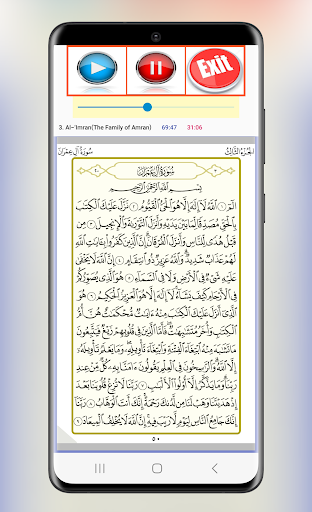 Exit
3. Al-'Imran(The Family of Amran) 69:47 31:06
الجزء الثالث سورة آل عمران
سُورَةُ آلِ عِمْرَانَ
بِسْمِ ٱللَّهِ ٱلرَّحْمَٰنِ ٱلرَّحِيمِ
الٓمٓ ١ ٱللَّهُ لَآ إِلَٰهَ إِلَّا هُوَ ٱلْحَىُّ ٱلْقَيُّومُ ٢ نَزَّلَ عَلَيْكَ ٱلْكِتَٰبَ
بِٱلْحَقِّ مُصَدِّقًا لِّمَا بَيْنَ يَدَيْهِ وَأَنزَلَ ٱلتَّوْرَىٰةَ وَٱلْإِنجِيلَ ٣ مِن
قَبْلُ هُدًى لِّلنَّاسِ وَأَنزَلَ ٱلْفُرْقَانَ إِنَّ ٱلَّذِينَ كَفَرُوا۟ بِـَٔايَٰتِ ٱللَّهِ
لَهُمْ عَذَابٌ شَدِيدٌ وَٱللَّهُ عَزِيزٌ ذُو ٱنتِقَامٍ ٤ إِنَّ ٱللَّهَ لَا يَخْفَىٰ
عَلَيْهِ شَىْءٌ فِى ٱلْأَرْضِ وَلَا فِى ٱلسَّمَآءِ ٥ هُوَ ٱلَّذِى يُصَوِّرُكُمْ
فِى ٱلْأَرْحَامِ كَيْفَ يَشَآءُ لَآ إِلَٰهَ إِلَّا هُوَ ٱلْعَزِيزُ ٱلْحَكِيمُ ٦ هُوَ ٱلَّذِىٓ
أَنزَلَ عَلَيْكَ ٱلْكِتَٰبَ مِنْهُ ءَايَٰتٌ مُّحْكَمَٰتٌ هُنَّ أُمُّ
ٱلْكِتَٰبِ وَأُخَرُ مُتَشَٰبِهَٰتٌ فَأَمَّا ٱلَّذِينَ فِى قُلُوبِهِمْ زَيْغٌ فَيَتَّبِعُونَ
مَا تَشَٰبَهَ مِنْهُ ٱبْتِغَآءَ ٱلْفِتْنَةِ وَٱبْتِغَآءَ تَأْوِيلِهِۦ وَمَا يَعْلَمُ تَأْوِيلَهُۥٓ
إِلَّا ٱللَّهُ وَٱلرَّٰسِخُونَ فِى ٱلْعِلْمِ يَقُولُونَ ءَامَنَّا بِهِۦ كُلٌّ مِّنْ عِندِ
رَبِّنَا وَمَا يَذَّكَّرُ إِلَّآ أُو۟لُوا۟ ٱلْأَلْبَٰبِ ٧ رَبَّنَا لَا تُزِغْ قُلُوبَنَا بَعْدَ
إِذْ هَدَيْتَنَا وَهَبْ لَنَا مِن لَّدُنكَ رَحْمَةً إِنَّكَ أَنتَ ٱلْوَهَّابُ ٨ رَبَّنَآ
إِنَّكَ جَامِعُ ٱلنَّاسِ لِيَوْمٍ لَّا رَيْبَ فِيهِ إِنَّ ٱللَّهَ لَا يُخْلِفُ ٱلْمِيعَادَ ٩
٥٠